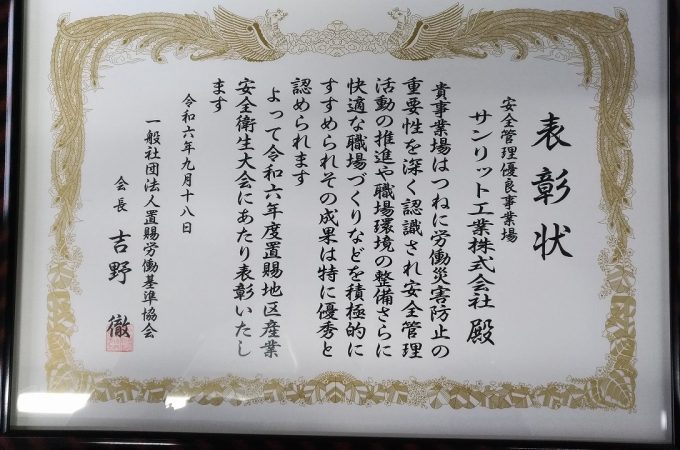 表彰状
安全管理優良事業場
サンリット工業株式会社 殿
貴事業場はつねに労働災害防止の
重要性を深く認識され安全管理
活動の推進や職場環境の整備さらに
快適な職場づくりなどを積極的に
すすめられその成果は特に優秀と
認められます
よって令和六年度置賜地区産業
安全衛生大会にあたり表彰いたし
ます
令和六年九月十八日
一般社団法人置賜労働基準協会
会長 吉野 徹